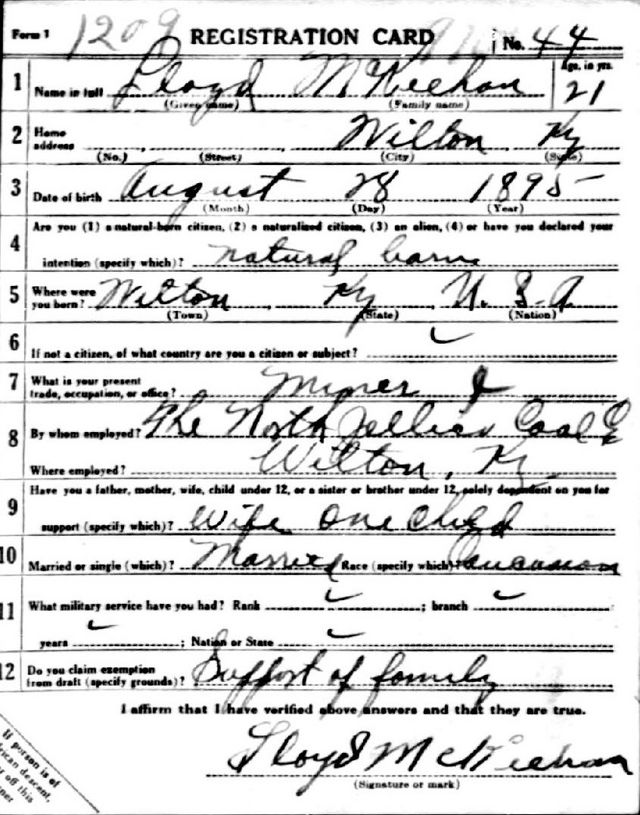 Form 1 1209 REGISTRATION CARD No. 44
1 Name in full Lloyd McKeehan Age, in yrs. 21
(Given name) (Family name)
2 Home address Wilton Ky
(No.) (Street) (City) (State)
3 Date of birth August 28 1895
(Month) (Day) (Year)
4 Are you (1) a natural-born citizen, (2) a naturalized citizen, (3) an alien, (4) or have you declared your
intention (specify which)? natural born
5 Where were you born? Wilton Ky U. S. A
(Town) (State) (Nation)
6 If not a citizen, of what country are you a citizen or subject?
7 What is your present trade, occupation, or office? Miner
8 By whom employed? The North Jellico Coal Co
Where employed? Wilton, Ky
9 Have you a father, mother, wife, child under 12, or a sister or brother under 12, solely dependent on you for
support (specify which)? Wife one child
10 Married or single (which)? Married Race (specify which)? Caucasian
11 What military service have you had? Rank ; branch
years ; Nation or State
12 Do you claim exemption from draft (specify grounds)? Support of family
I affirm that I have verified above answers and that they are true.
Lloyd McKeehan
(Signature or mark)
If person is of
African descent,
off this